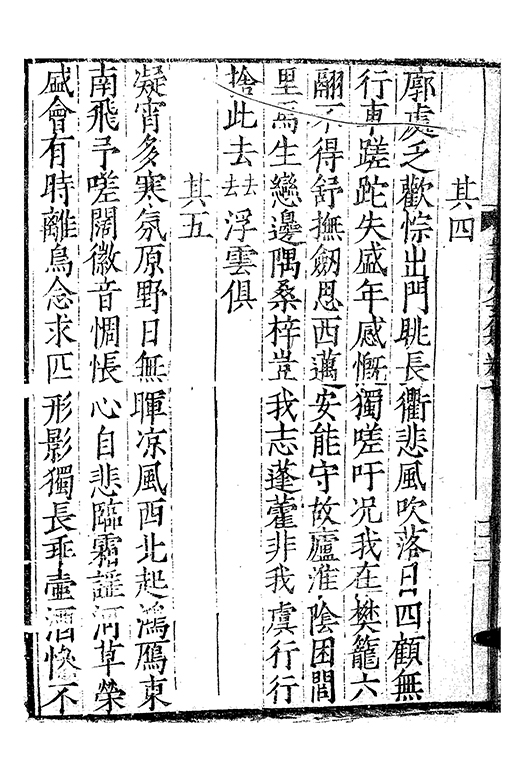 其四
廓處乏歡悰出門眺長衢悲風吹落日四顧無
行車蹉跎失盛年感慨獨嗟吁况我在樊籠六
翮不得舒撫劒思西邁安能守故廬淮陰困閭
里馬生戀邊隅桑梓豈我志蓬藿非我虞行行
捨此去去去浮雲俱
其五
凝宵多寒氛原野日無暉凉風西北起鴻鴈東
南飛予嗟闊徽音惆悵心自悲臨霜河草榮
盛會有時離鳥念求匹形影獨長乖壷酒惨不